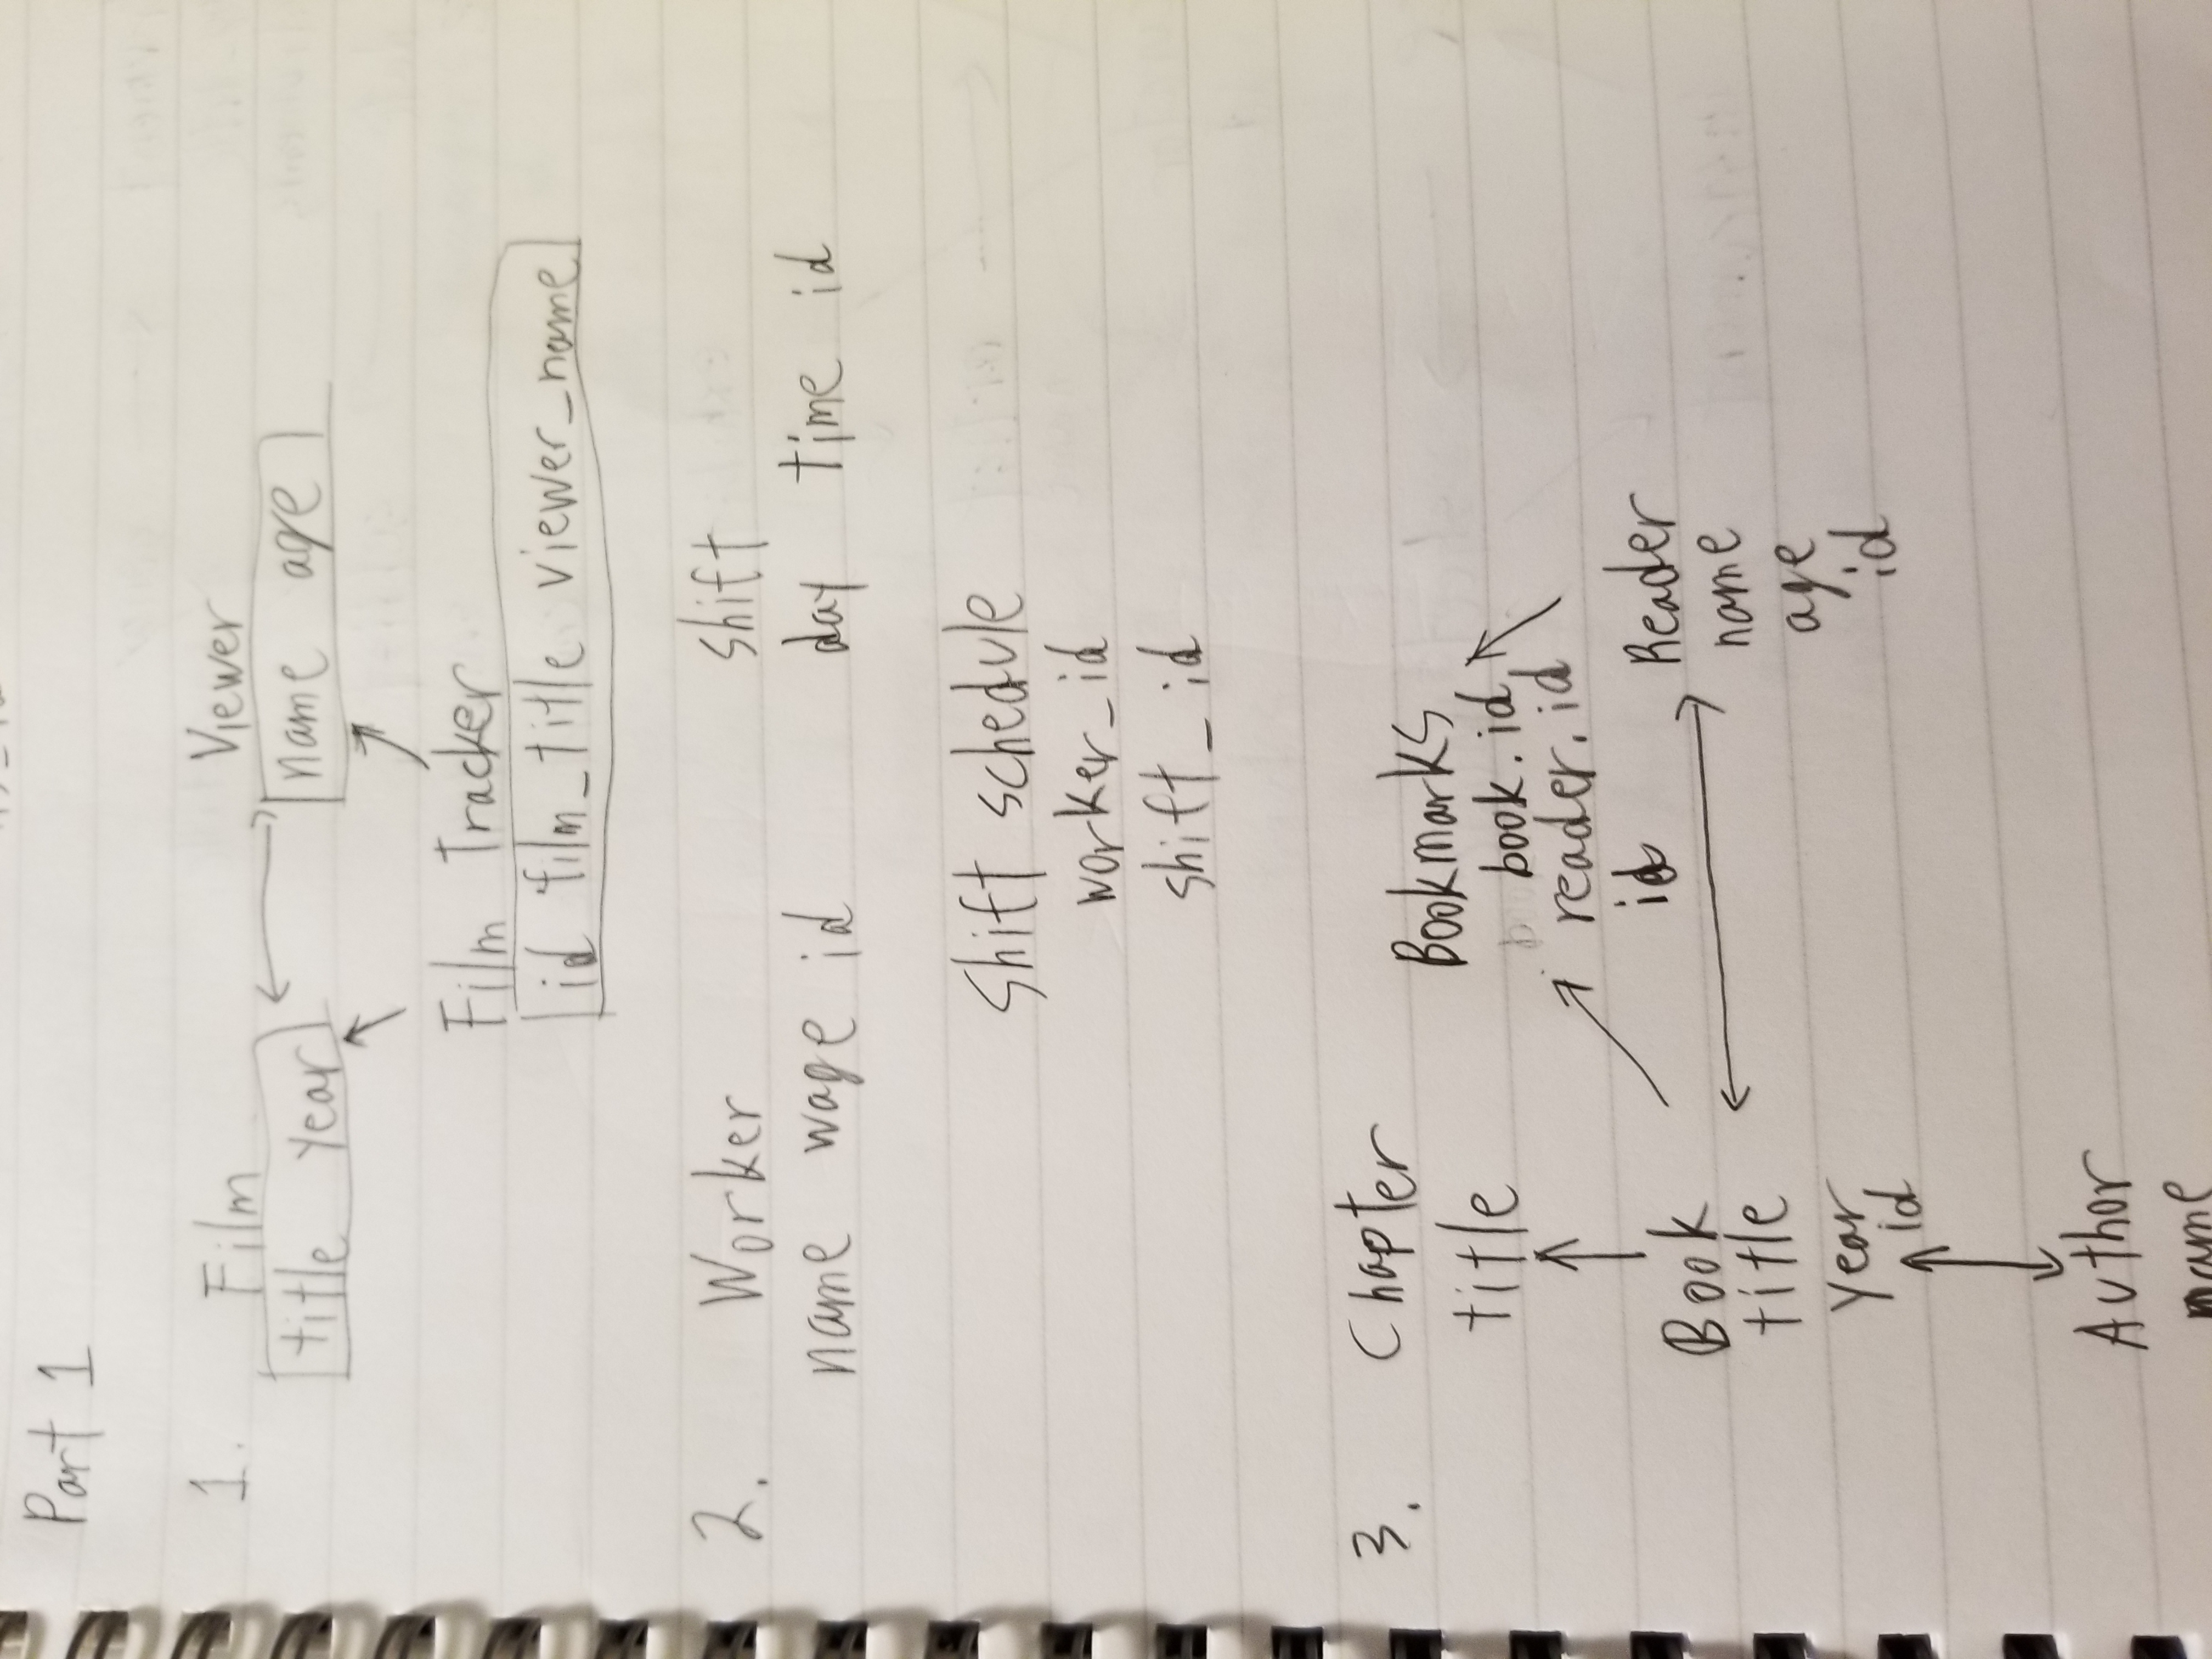 Part 1
1. Film Viewer
title year name age
Film Tracker
id film_title viewer_name
2. Worker Shift
name wage id day time id
Shift schedule
worker_id
shift_id
3. Chapter
title
Bookmarks
book.id
reader.id
id
Book
title
year
id
Reader
name
age
id
Author
name